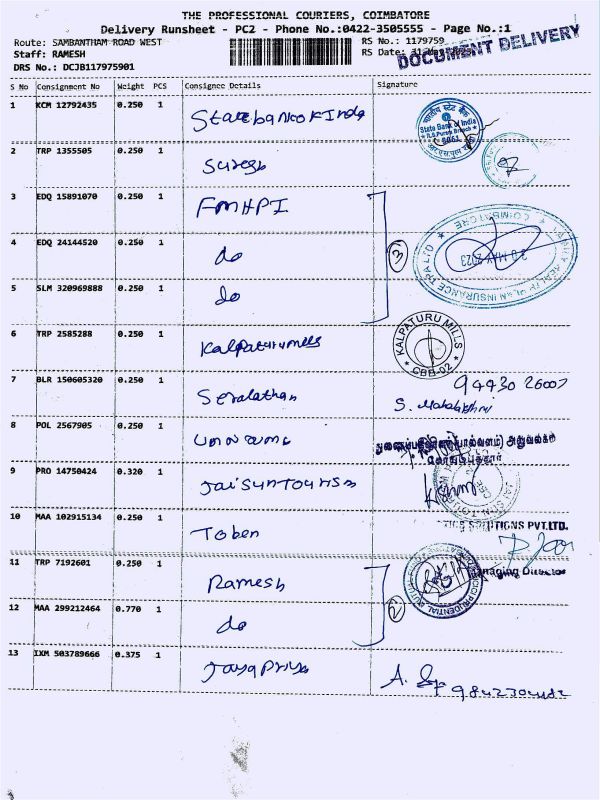 THE PROFESSIONAL COURIERS, COIMBATORE
Delivery Runsheet - PC2 - Phone No.:0422-3505555 - Page No.:1
Route: SAMBANTHAM ROAD WEST
RS No.: 1179759
Staff: RAMESH
RS Date:
DOCUMENT DELIVERY
DRS No.: DCJB117975901
S No Consignment No Weight PCS Consignee Details Signature
1 KCM 12792435 0.250 1 State bank of India
State Bank of India
2 TRP 1355505 0.250 1 Suresh
3 EDQ 15891070 0.250 1 FMHPI
COIMBATORE
MAY 2023
PLAN INSURANCE TPA LTD
4 EDQ 24144520 0.250 1 do
3
5 SLM 320969888 0.250 1 do
6 TRP 2585288 0.250 1 Kalpaturumills
KALPATURU MILLS
CBB-02
7 BLR 150605320 0.250 1 Seralathan
94430 26007
S. Mahalakshmi
8 POL 2567905 0.250 1
அலுவலகம்
9 PRO 14750424 0.320 1 Jaisuntourism
10 MAA 102915134 0.250 1 Toben
SOLUTIONS PVT.LTD.
Managing Director
11 TRP 7192601 0.250 1 Ramesh
PRUDENTIAL
12 MAA 299212464 0.770 1 do
2
13 IXM 503789666 0.375 1 Jayapriya